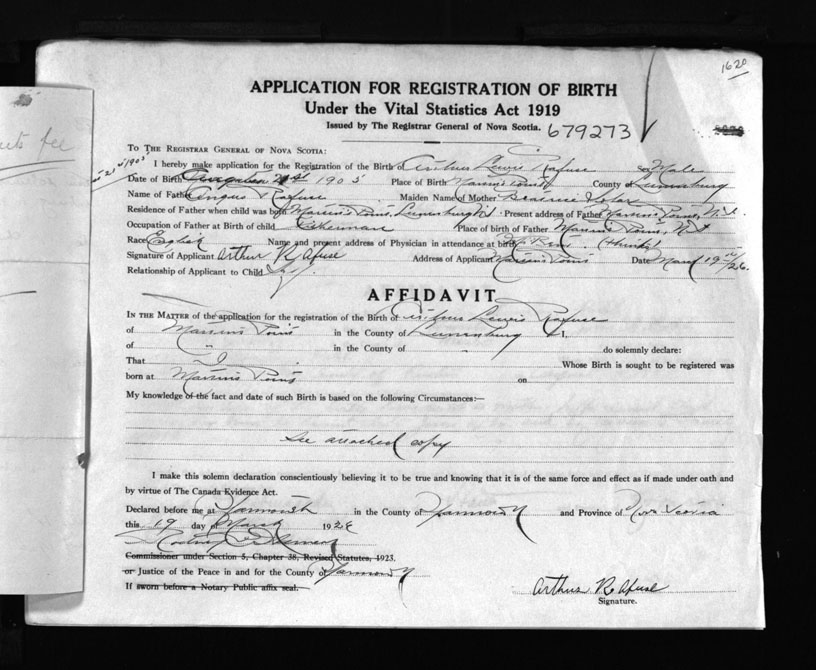 1620
APPLICATION FOR REGISTRATION OF BIRTH
Under the Vital Statistics Act 1919
Issued by The Registrar General of Nova Scotia. 679273
To The Registrar General of Nova Scotia:
I hereby make application for the Registration of the Birth of Arthur Lewis Rafuse Male
Date of Birth 21st 1905 Place of Birth Martins Point County of Lunenburg
Name of Father Angus Rafuse Maiden Name of Mother Beatrice
Residence of Father when child was born Martins Point, Lunenburg Present address of Father Martins Point, N.S.
Occupation of Father at Birth of child Fisherman Place of birth of Father Martins Point, N.S.
Race English Name and present address of Physician in attendance at birth
Signature of Applicant Arthur Rafuse Address of Applicant Martins Point Date March 19th/26.
Relationship of Applicant to Child
AFFIDAVIT
In the Matter of the application for the registration of the Birth of Arthur Lewis Rafuse
of Martins Point in the County of Lunenburg I,
of " in the County of " do solemnly declare:
That I Whose Birth is sought to be registered was
born at Martins Point on
My knowledge of the fact and date of such Birth is based on the following Circumstances:—
See attached copy
I make this solemn declaration conscientiously believing it to be true and knowing that it is of the same force and effect as if made under oath and
by virtue of The Canada Evidence Act.
Declared before me at Yarmouth in the County of Yarmouth and Province of Nova Scotia
this 19 day of March 1926
Commissioner under Section 5, Chapter 38, Revised Statutes, 1923.
or Justice of the Peace in and for the County of Yarmouth
If sworn before a Notary Public affix seal.
Arthur Rafuse
Signature.